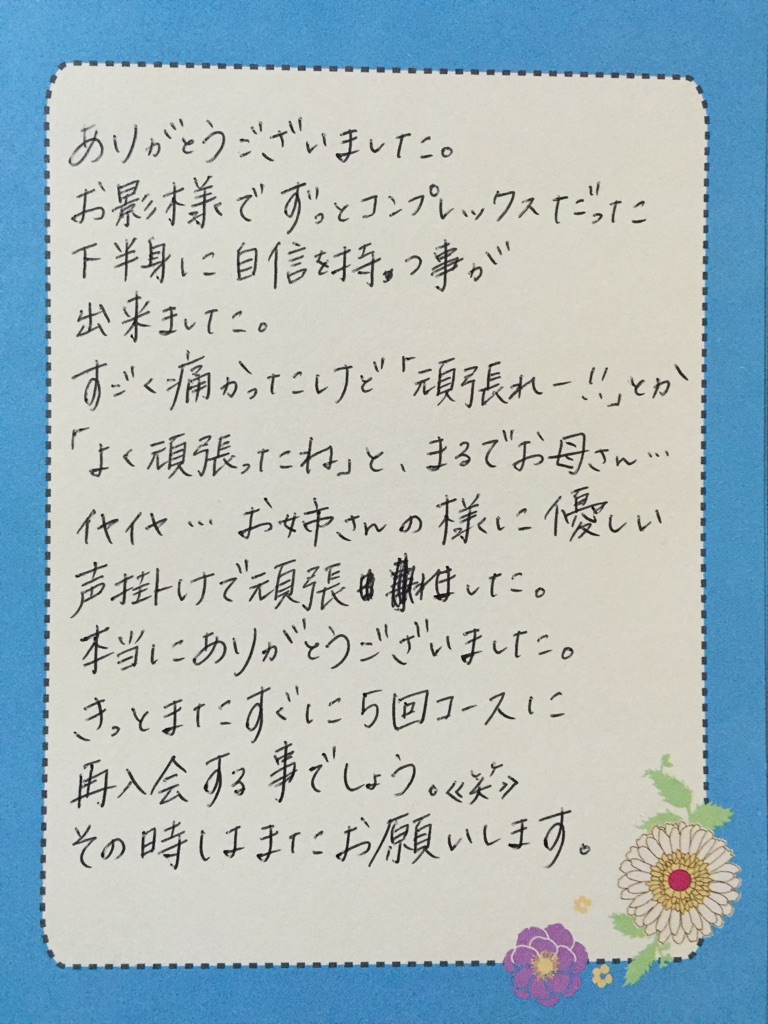 ありがとうございました。
お影様で ずっとコンプレックスだった
下半身に自信を持つ事が
出来ました。
すごく痛かったけど「頑張れー!!」とか
「よく頑張ったね」と、まるでお母さん…
イヤイヤ… お姉さんの様に優しい
声掛けで頑張れました。
本当にありがとうございました。
きっとまたすぐに5回コースに
再入会する事でしょう。≪笑≫
その時はまたお願いします。